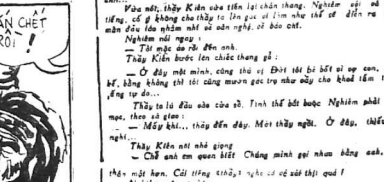 ẮN CHẾT
RỒI !
Vừa nói, thầy Kiên vừa tiến lại chân thang. Nghiêm vội vã
tiếng, cố ý không cho thầy ta lên gác vì làm như thế sẽ diễn ra
màn đấu lửa nhằm nhí về văn nghệ, về báo chí.
Nghiêm nói ngay :
— Tôi mặc áo rồi đến anh.
Thầy Kiên bước lên chiếc thang gỗ :
— Ở đây một mình, cũng thú vị Đời tôi bê bết vì vợ con,
bế, bằng không thì tôi cũng mượn gác trọ như vầy cho khoái tâm
sống tự do...
Thầy ta ló đầu vào cửa sổ. Tình thế bắt buộc Nghiêm phải
mọc, theo xã giao :
— Mấy khi... thầy đến đây. Mời thầy ngồi. Ở đây, thiếu
nghi...
Thầy Kiên nói nhỏ giọng
— Chỗ anh em quen biết Chúng mình gọi nhau bằng anh,
thân mật hơn. Cái tiếng thầy nghe có vẻ xài thịt quá !